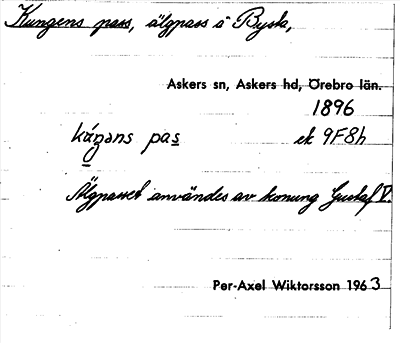 Kungens pass, älgpass å Bysta,
Askers sn, Askers hd, Örebro län.
1896
káŋəns pas ek 9F8h
Älgpasset användes av konung Gustaf V.
Per-Axel Wiktorsson 1963